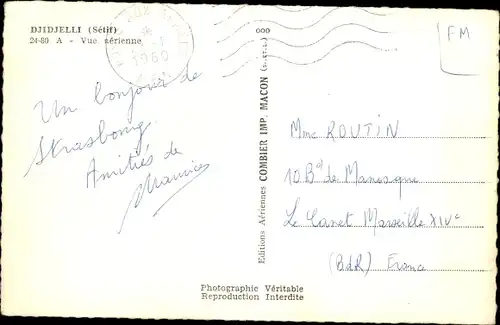 DJIDJELLI (Sétif)
24-80 A - Vue aérienne
1960
Un bonjour de
Strasbourg.
Amitiés de
Maurice
ooo
FM
Editions Aériennes COMBIER IMP. MACON (S.-et-L.)
Mme ROUTIN
10 Bd de Manosque
Le Canet Marseille XIVe
(BdR) France
Photographie Véritable
Reproduction Interdite